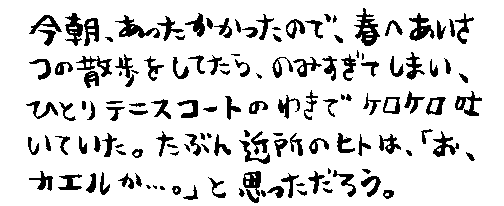 今朝、あったかかったので、春へあいさ
つの散歩をしてたら、のみすぎてしまい、
ひとりテニスコートのわきでケロケロ吐
いていた。たぶん近所のヒトは、「お、
カエルか…。」と思っただろう。